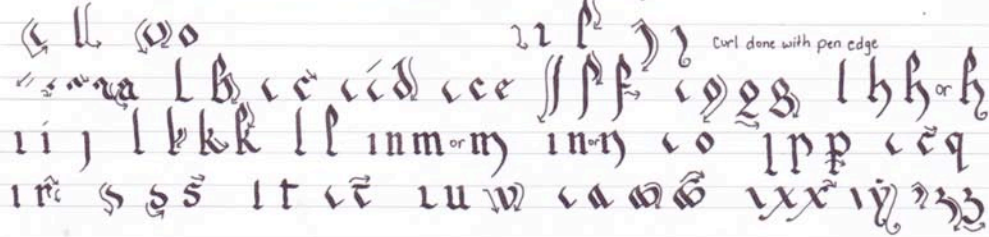 o Curl done with pen edge
a b c d e f g h h or h
i j k k l m or m n or n o p q
r s t u w x y z